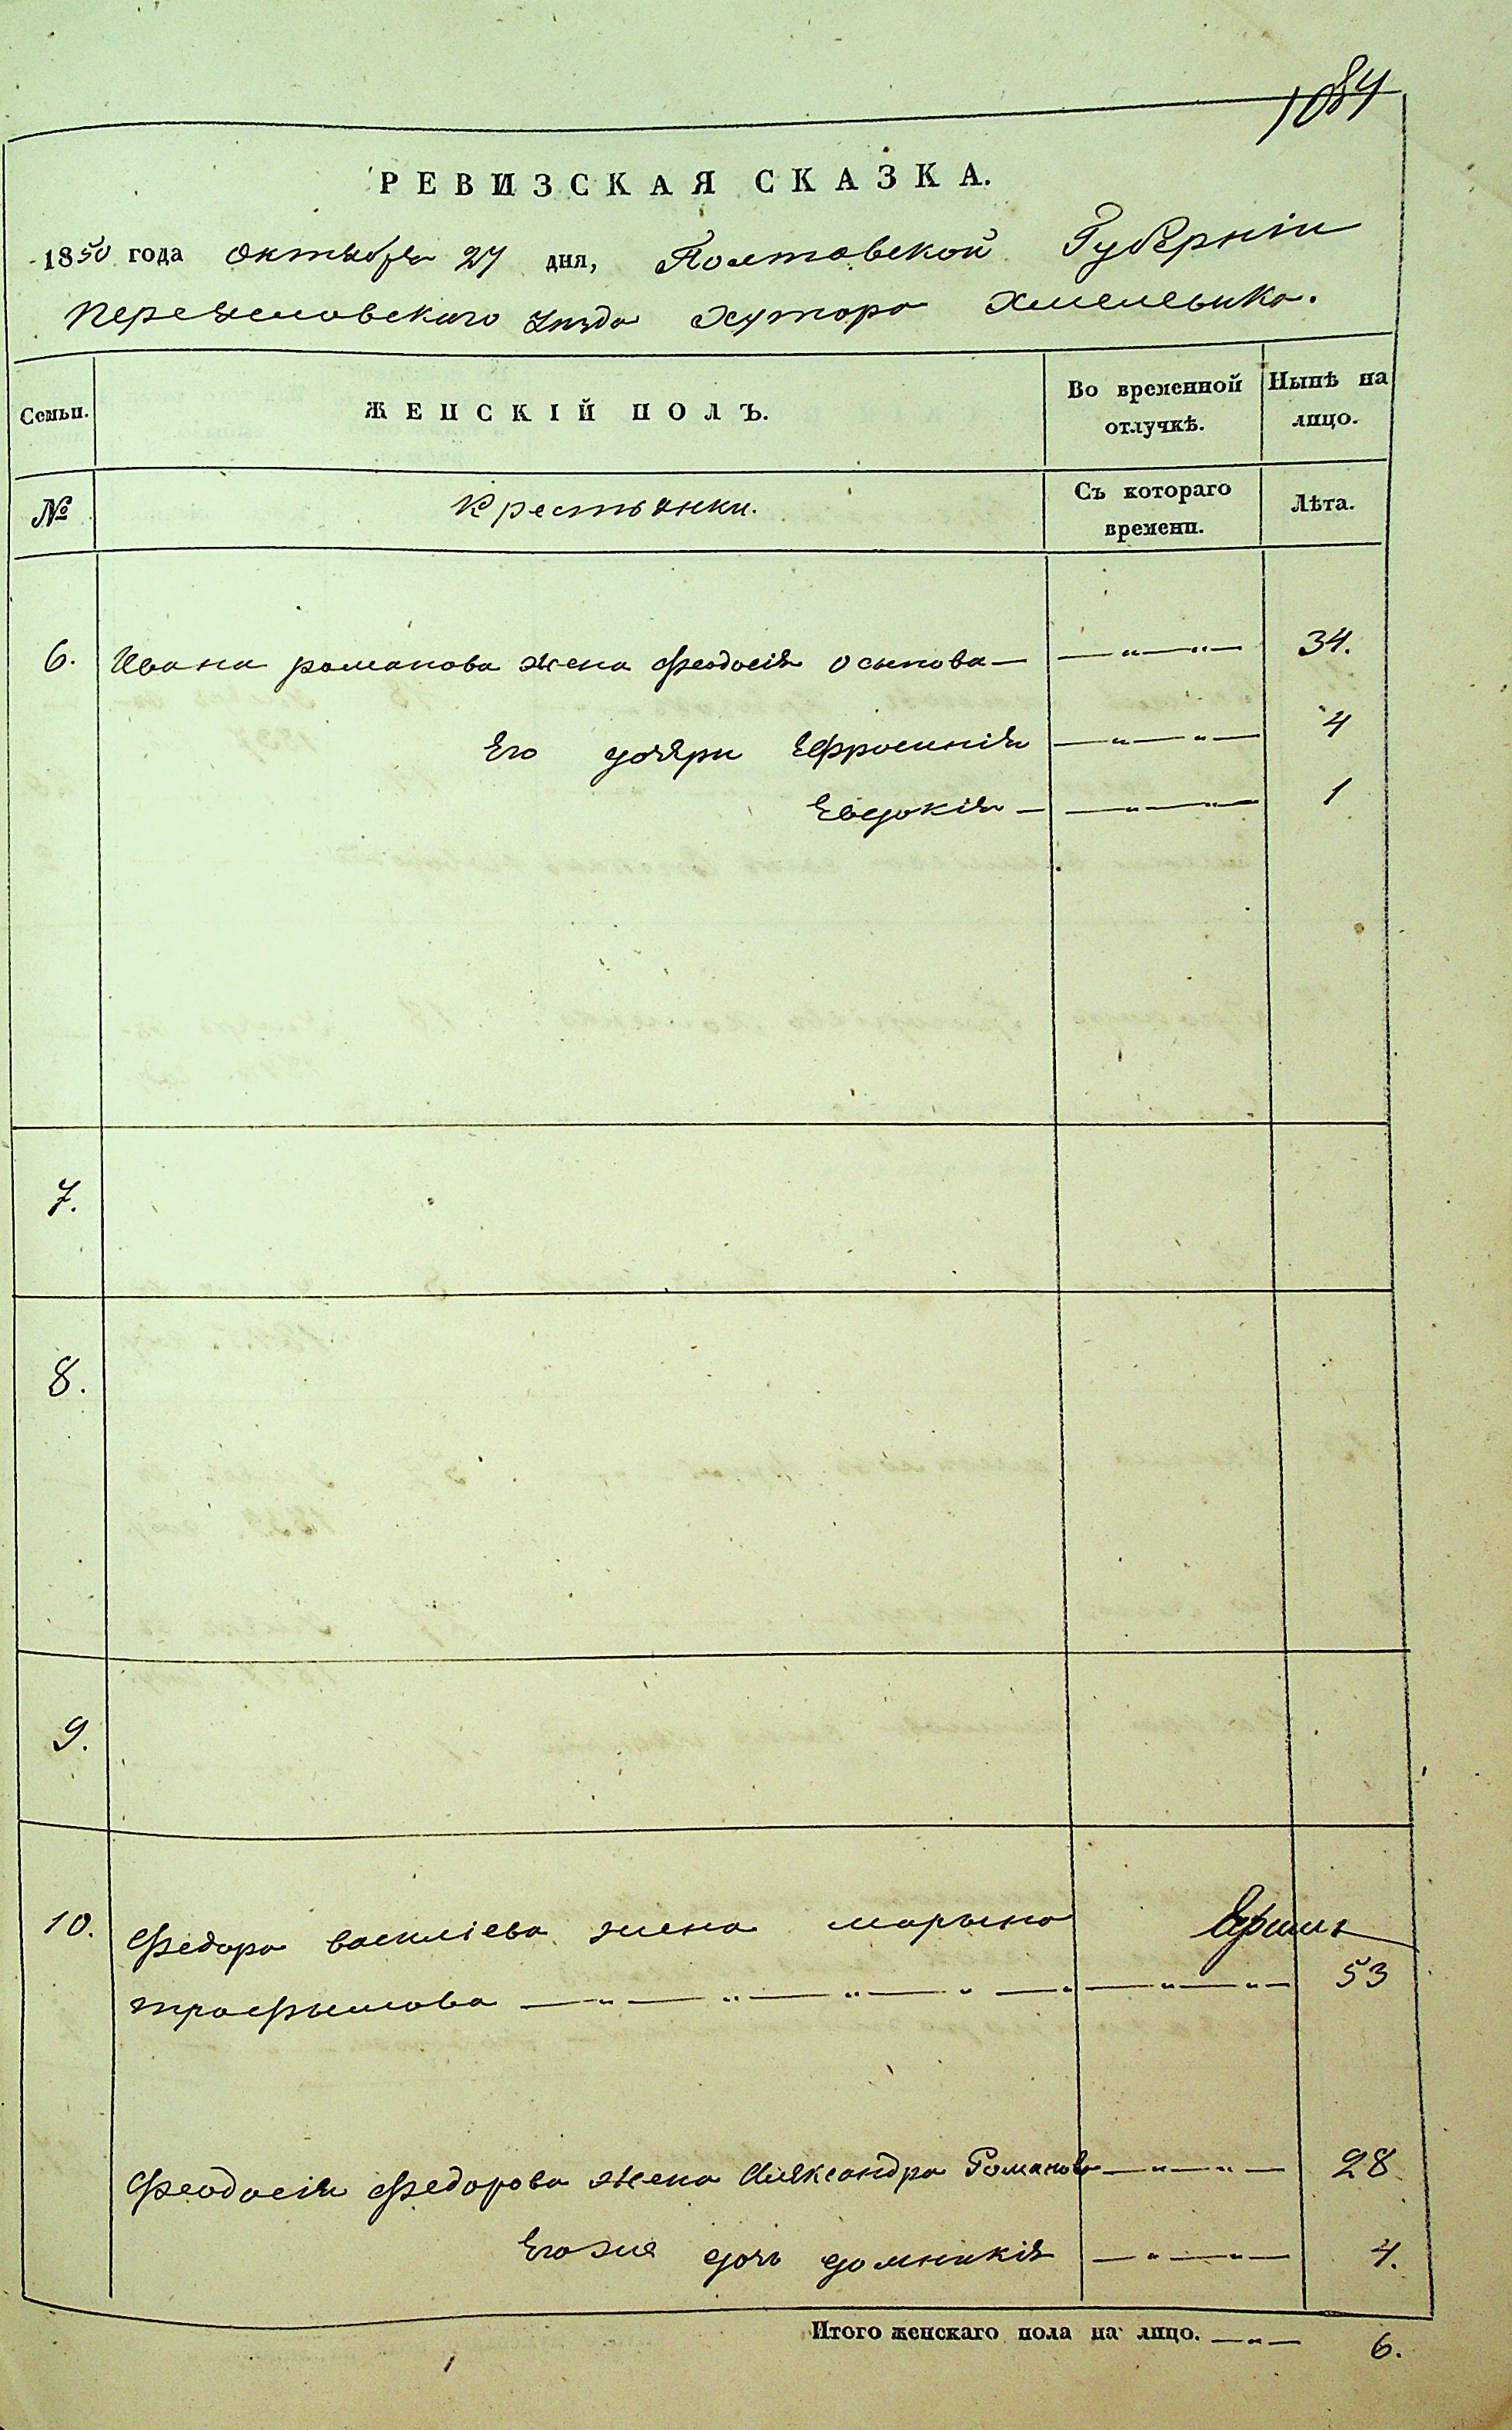 1084
РЕВИЗСКАЯ СКАЗКА.
1850 года Октября 27 дня, Полтавской Губерніи
Переяславскаго уѣзда хутора Хмелевика.
Семьи. ЖЕНСКІЙ ПОЛЪ. Во временной отлучкѣ. Нынѣ на лицо.
№ Крестьянки. Съ котораго времени. Лѣта.
6. Ивана романова жена Феодосія осыпова — — „ — „ — 34.
Его дочери Ефросинія — „ — „ — 4
Евдокія — — „ — „ — 1
7.
8.
9.
10. Федора василіева жена марына
трофымова — „ — „ — „ — „ — „ — „ — 53
Феодосія Федорова жена Александра Романова — „ — „ — 28
Его же дочь домникія — „ — „ — 4.
Итого женскаго пола на лицо. — „ — 6.